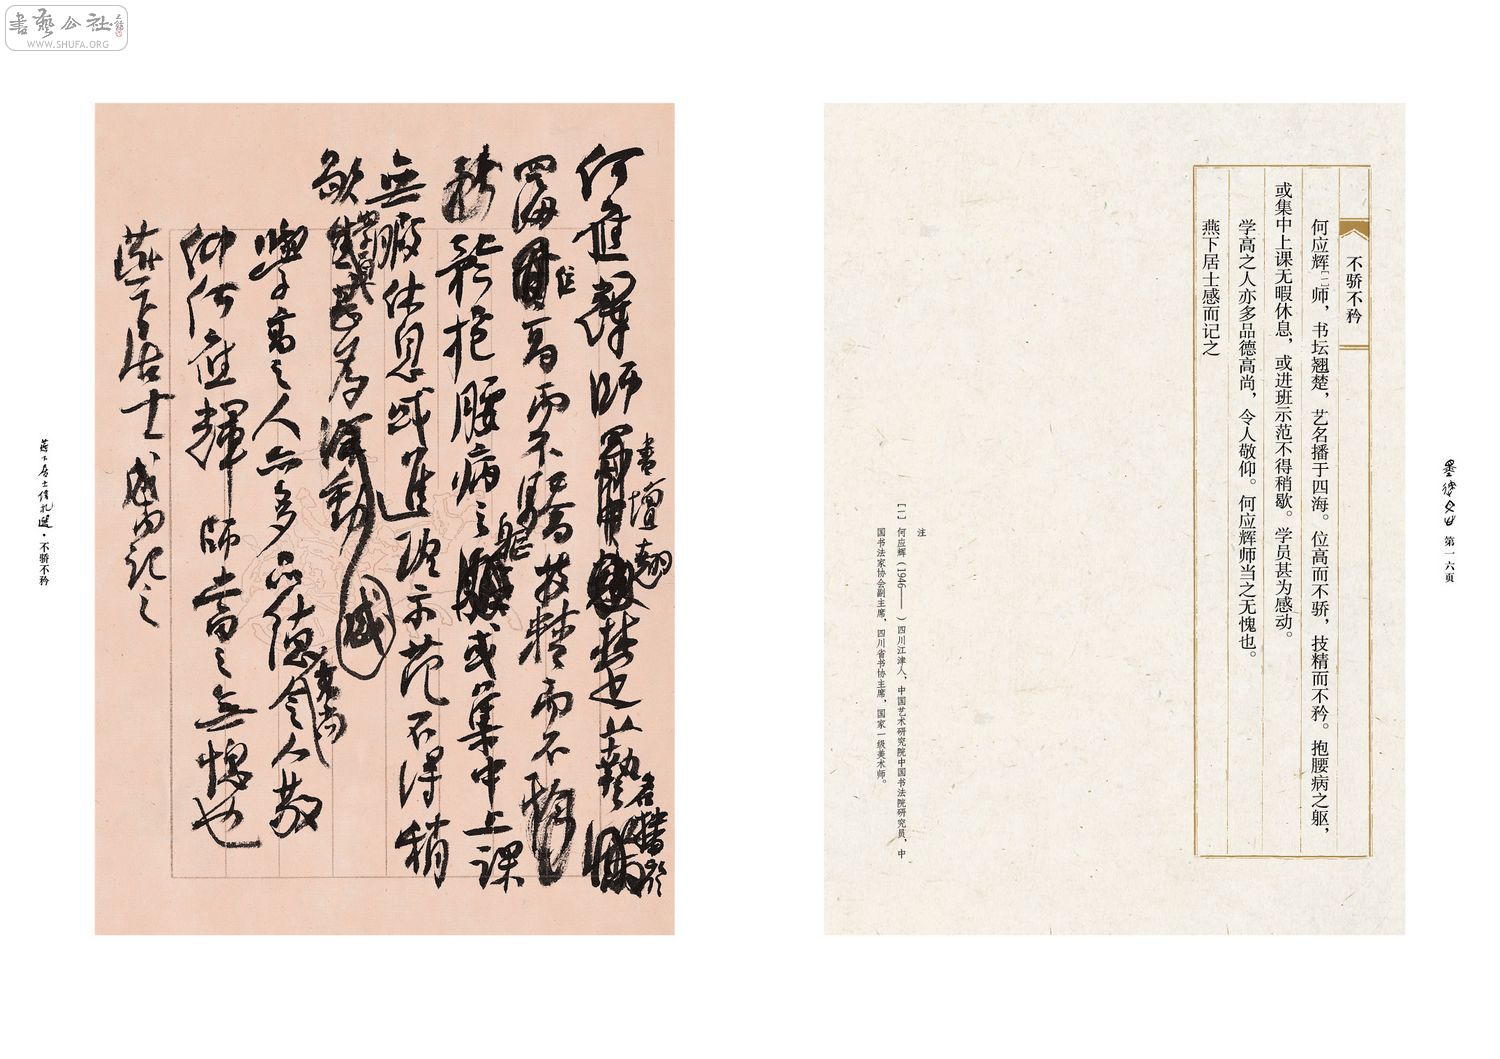 書藝公社
WWW.SHUFA.ORG
第一六页
不骄不矜
何应辉[一]师，书坛翘楚，艺名播于四海。位高而不骄，技精而不矜。抱腰病之躯，
或集中上课无暇休息，或进班示范不得稍歇。学员甚为感动。
学高之人亦多品德高尚，令人敬仰。何应辉师当之无愧也。
燕下居士感而记之
注
[一] 何应辉（1946——　）四川江津人，中国艺术研究院中国书法院研究员，中
国书法家协会副主席，四川省书协主席，国家一级美术师。
何應輝師
書壇翹
楚也藝
名播於
四海
位
高而不驕技精而不矜
於抱腰病之
軀
或集中上课
无暇休息或進班示范不得稍
歇
學員
甚為
感
動
學高之人亦多品德
高尚
令人敬
仰何應輝師當之無愧也
燕下居士感而記之
燕下居士信札選·不骄不矜